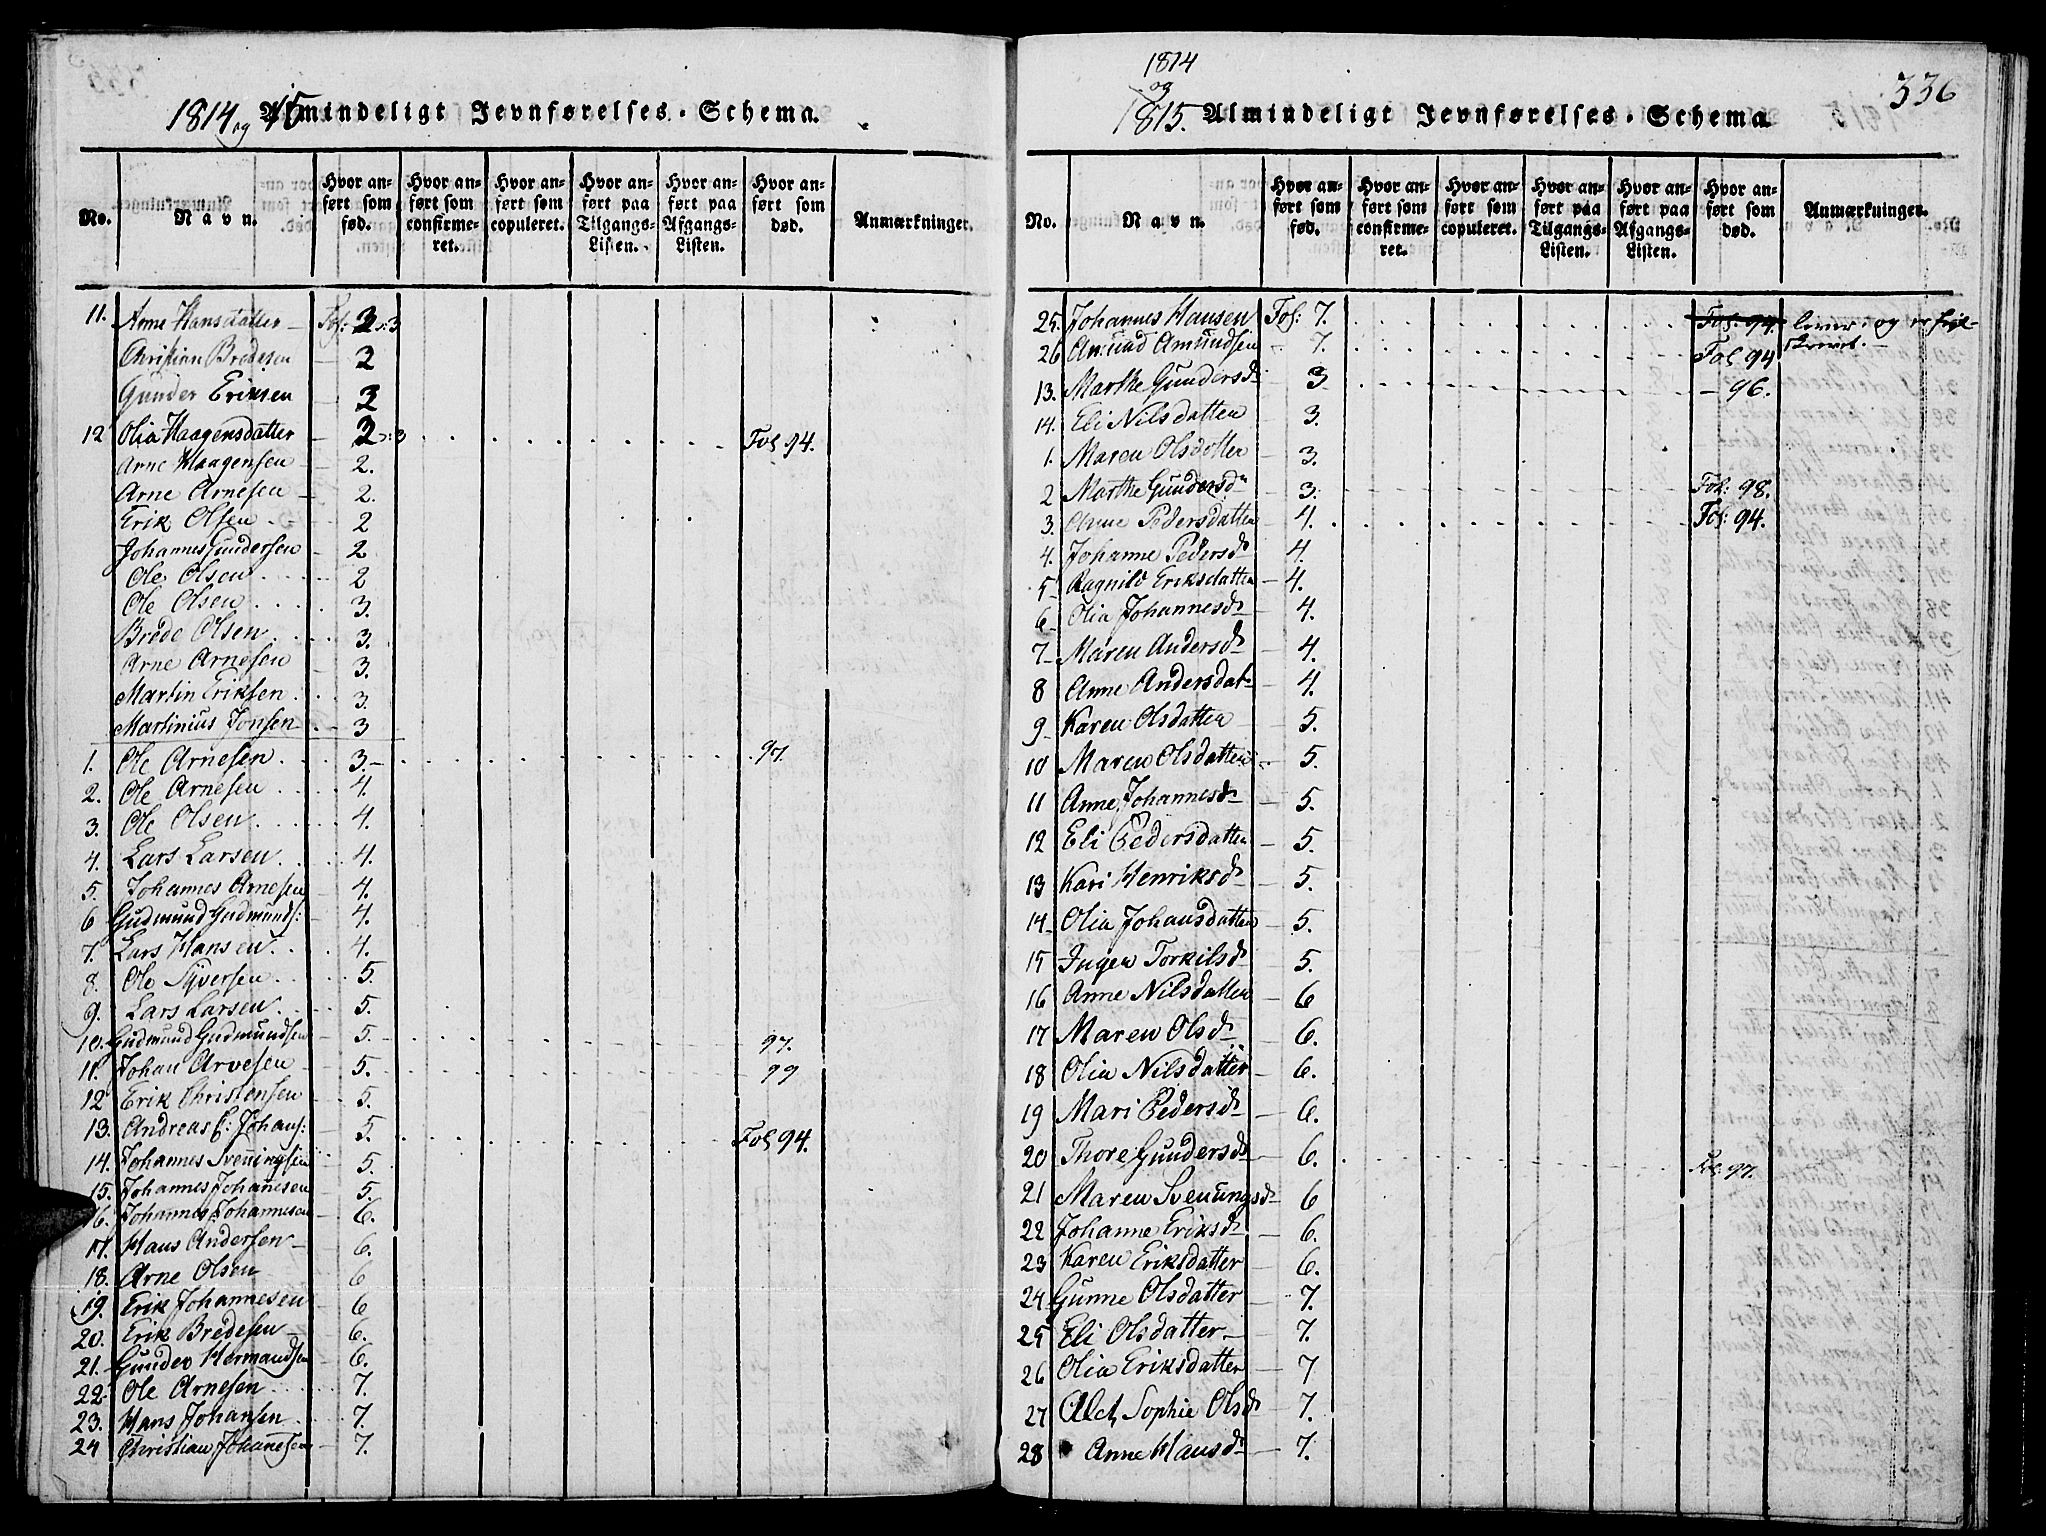 1814 og 15 Almindeligt Jevnførelses-Schema.
No. Navn. Hvor anført som fød. Hvor anført som confirmeret. Hvor anført som copuleret. Hvor anført paa Tilgangs-Listen. Hvor anført paa Afgangs-Listen. Hvor anført som død. Anmærkninger.
11. Anne Hansdatter - Fol: 2:3
Christian Bredesen 2
Gunder Eriksen 2
12 Olia Haagensdatter - 2:3 Fol 94.
Arne Haagensen - 2.
Arne Arnesen - 2.
Erik Olsen 2
Johannes Gundersen - 2
Ole Olsen 2
Ole Olsen 3.
Brede Olsen 3.
Arne Arnesen - 3.
Martin Eriksen 3.
Martinius Jonsen - 3
1. Ole Arnesen 3. 97.
2. Ole Arnesen 4.
3. Ole Olsen 4.
4. Lars Larsen 4.
5. Johannes Arnesen - 4.
6 Gudmund Gudmunds: - 4.
7. Lars Hansen 4.
8. Ole Syversen 5.
9. Lars Larsen 5.
10. Gudmund Gudmundsen - 5. 97.
11. Johan Arvesen - 5. 99
12 Erik Christensen - 5.
13. Andreas C: Johans: 5. Fol 94.
14. Johannes Sveningsen 5.
15. Johannes Johannesen 5.
16. Johannes Johannesen 6.
17. Hans Andersen - 6.
18. Arne Olsen 6
19. Erik Johannesen - 6
20. Erik Bredesen - 6.
21. Gunder Hermandsen 6.
22. Ole Arnesen 7.
23. Hans Johansen 7.
24 Christian Johannesen - 7.
336
1814 og 1815. Almindeligt Jevnførelses-Schema
No. Navn. Hvor anført som fød. Hvor anført som confirmeret. Hvor anført som copuleret. Hvor anført paa Tilgangs-Listen. Hvor anført paa Afgangs-Listen. Hvor anført som død. Anmærkninger.
25. Johannes Hansen Fol: 7. Fol: 94. lever og er
26 Amund Amundsen - 7. Fol 94
13. Marthe Gundersd. 3 - 96.
14. Eli Nilsdatter - 3.
1. Maren Olsdatter - 3.
2 Marthe Gundersdr - 3. Fol: 98.
3. Anne Pedersdatter - 4. Fol: 94.
4. Johanne Pedersdr 4.
5 Ragnild Eriksdatter - 4.
6 Olia Johannesdr - 4.
7 Maren Andersdr - 4.
8 Anne Andersdatr - 4.
9 Karen Olsdatter - 5.
10 Maren Olsdatter - 5.
11 Anne Johannesdr - 5.
12 Eli Pedersdatter - 5.
13 Kari Henriksdr - 5.
14 Olia Johansdatter - 5.
15 Ingen Torkilsdr - 5.
16 Anne Nilsdatter - 6
17 Maren Olsdr - 6.
18 Olia Nilsdatter - 6.
19 Mari Pedersdr - 6.
20 Thore Gundersdr - 6. Fol. 97.
21 Maren Sveningsdr 6
22 Johanne Eriksdr - 6.
23 Karen Eriksdatter - 6.
24 Gunne Olsdatter - 7.
25 Eli Olsdatter - 7.
26 Olia Eriksdatter - 7
27 Alet Sophie Olsdr - 7.
28 Anne Hansdr - 7.